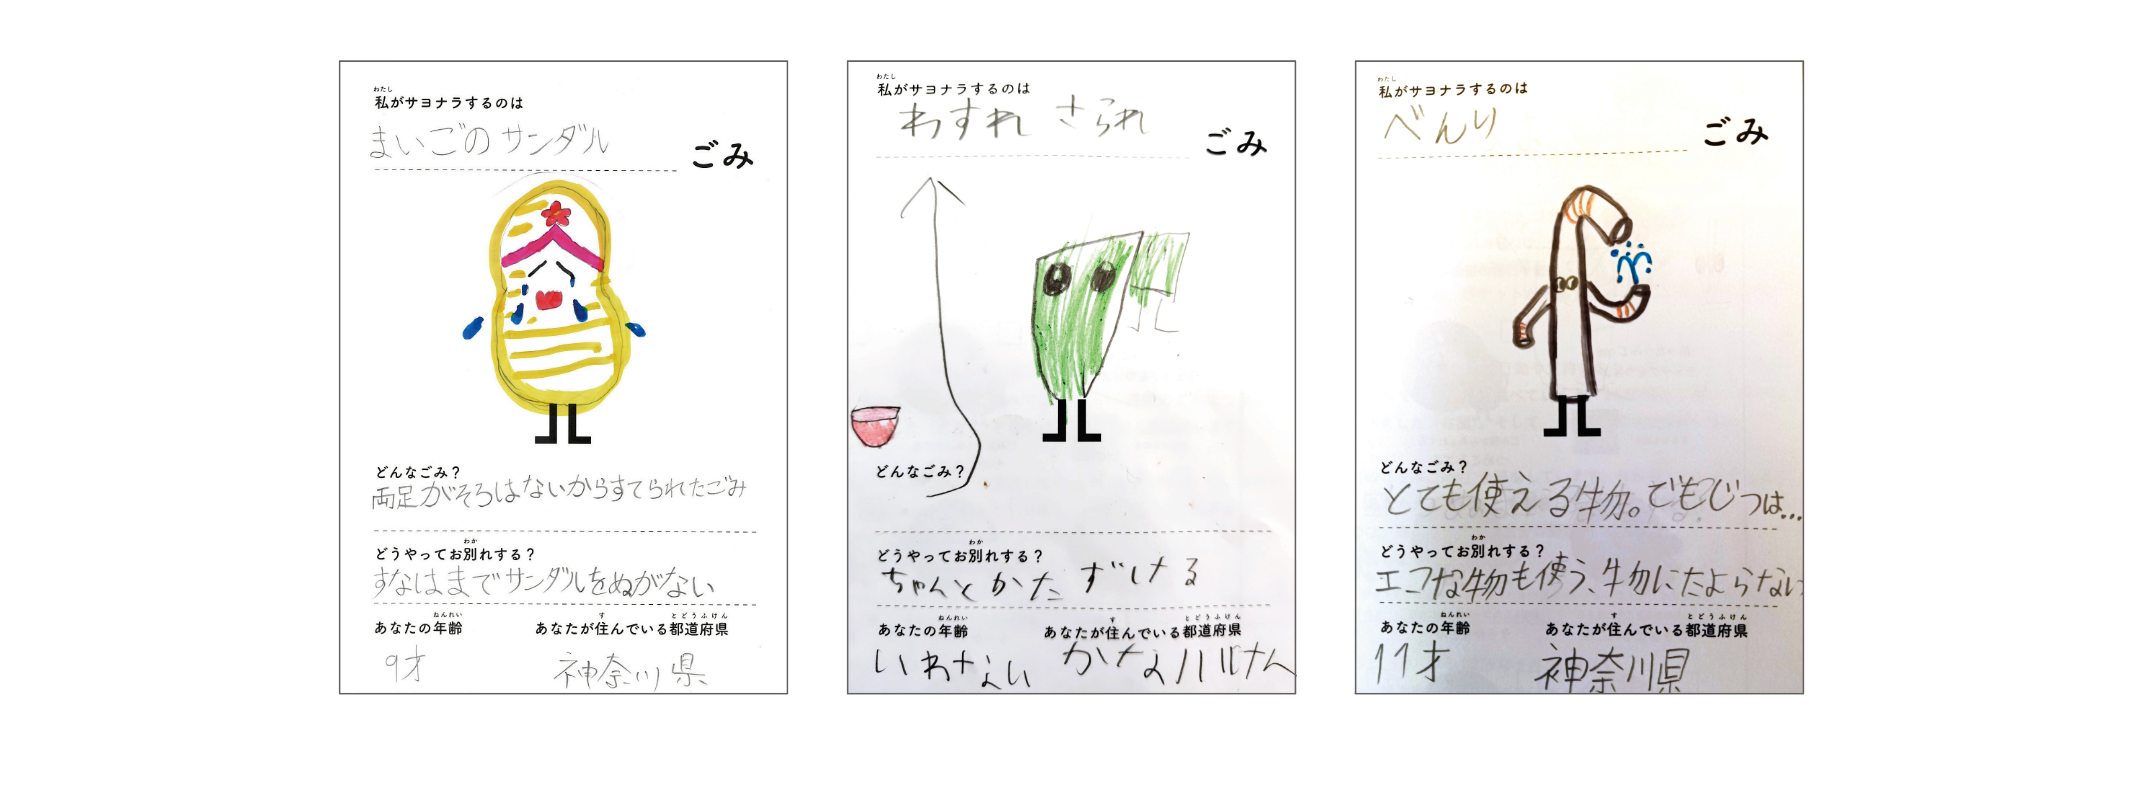 わたし
私がサヨナラするのは
まいごのサンダル
ごみ
どんなごみ？
両足がそろはないからすてられたごみ
わか
どうやってお別れする？
すなはまでサンダルをぬがない
ねんれい
あなたの年齢
す とどうふけん
あなたが住んでいる都道府県
9才
神奈川県
わたし
私がサヨナラするのは
わすれ さられ
ごみ
どんなごみ？
わか
どうやってお別れする？
ちゃんと かた ずける
ねんれい
あなたの年齢
す とどうふけん
あなたが住んでいる都道府県
いわない
かな川けん
わたし
私がサヨナラするのは
べんり
ごみ
どんなごみ？
とても使える物。でもじつは...
わか
どうやってお別れする？
エコな物も使う、物にたよらない
ねんれい
あなたの年齢
す とどうふけん
あなたが住んでいる都道府県
11才
神奈川県